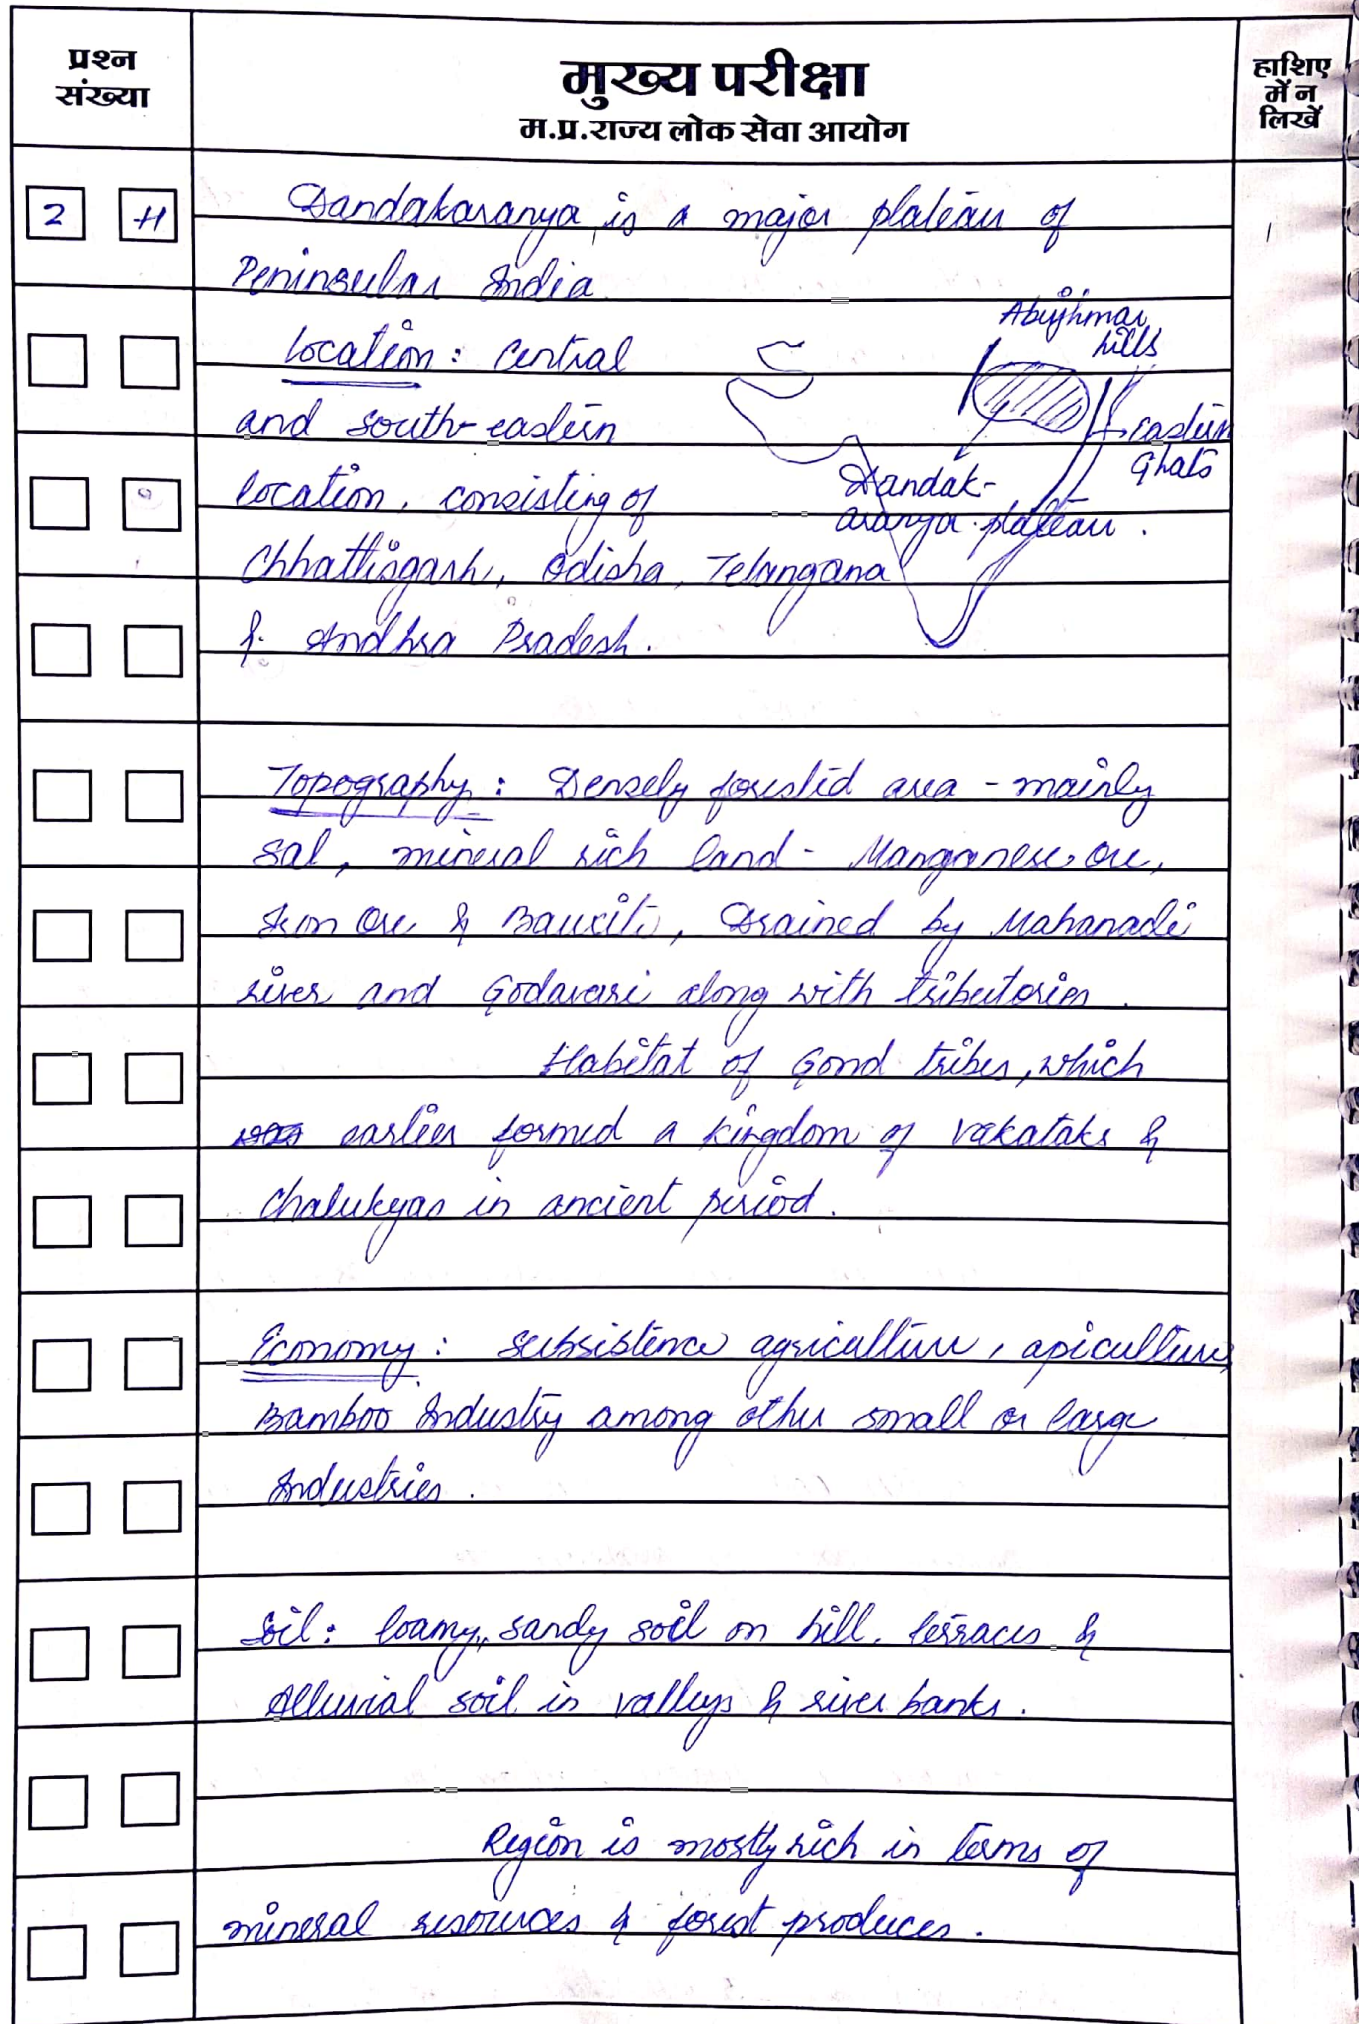 प्रश्न
संख्या
मुख्य परीक्षा
म.प्र.राज्य लोक सेवा आयोग
हाशिए
में न
लिखें
2 H
Dandakaranya is a major plateau of
Peninsular India
Abujhmar
hills
Location : Central
and south-eastern
Eastern
Ghats
location, consisting of
Dandak-
aranya plateau.
Chhattisgarh, Odisha, Telangana
& Andhra Pradesh.
Topography : Densely forested area - mainly
sal, mineral rich land - Manganese ore,
Iron Ore & Bauxite, Drained by Mahanadi
river and Godavari along with tributories.
Habitat of Gond tribes, which
earlier formed a kingdom of vakataks &
Chalukyas in ancient period.
Economy : Subsistence agriculture, apiculture,
Bamboo Industry among other small or large
Industries.
Soil : loamy, sandy soil on hill terraces &
Alluvial soil in valleys & river banks.
Region is mostly rich in terms of
mineral resources & forest produces.